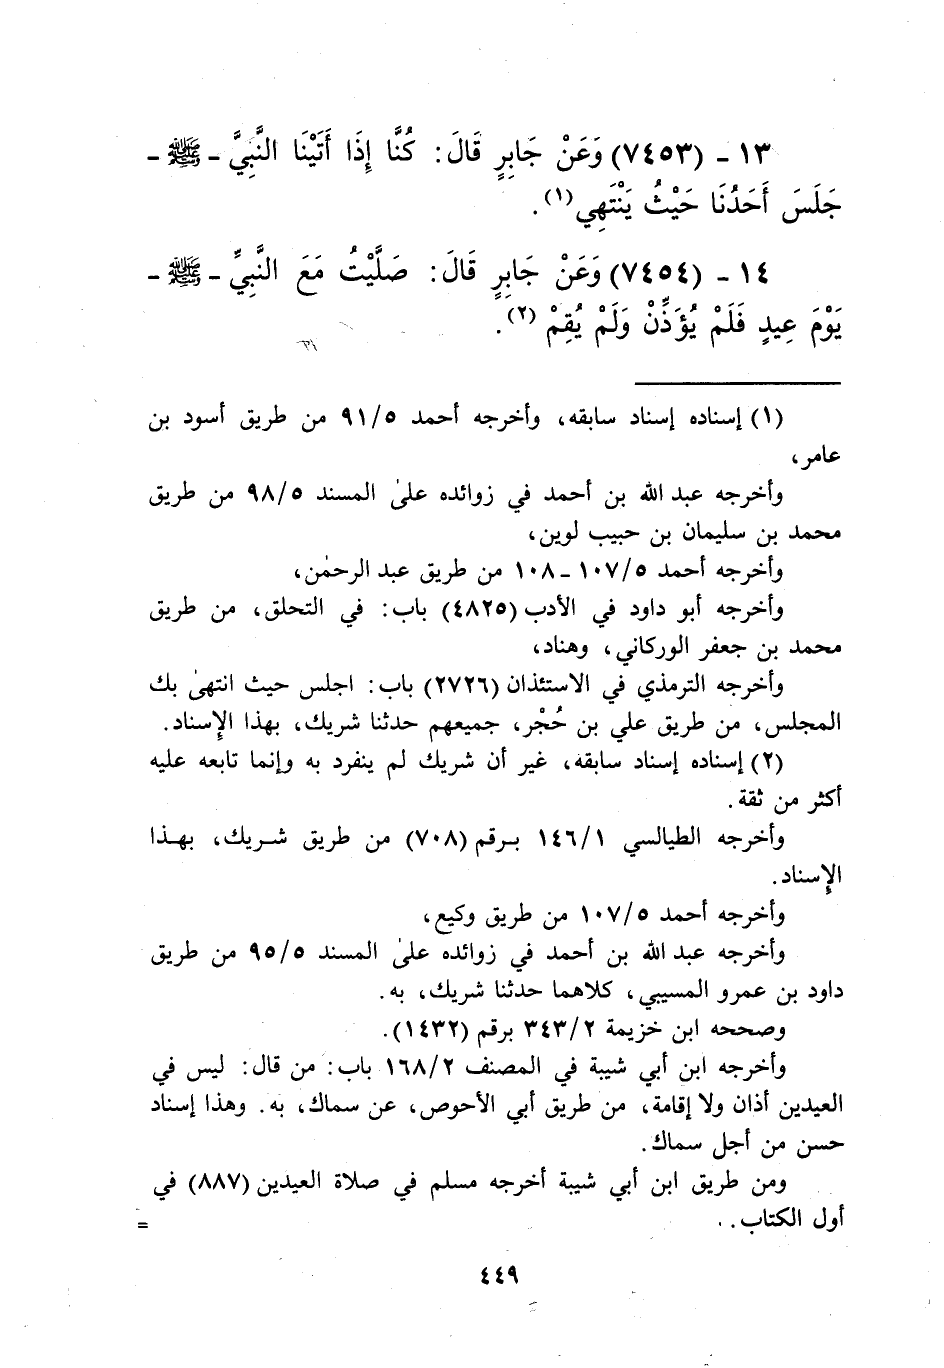 ١٣ - (٧٤٥٣) وَعَنْ جَابِرٍ قَالَ: كُنَّا إِذَا أَتَيْنَا النَّبِيَّ - ﷺ -
جَلَسَ أَحَدُنَا حَيْثُ يَنْتَهِي(١).
١٤ - (٧٤٥٤) وَعَنْ جَابِرٍ قَالَ: صَلَّيْتُ مَعَ النَّبِيِّ - ﷺ -
يَوْمَ عِيدٍ فَلَمْ يُؤَذِّنْ وَلَمْ يُقِمْ (٢).
(١) إسناده إسناد سابقه، وأخرجه أحمد ٩١/٥ من طريق أسود بن
عامر،
وأخرجه عبد الله بن أحمد في زوائده علىٰ المسند ٩٨/٥ من طريق
محمد بن سليمان بن حبيب لوين،
وأخرجه أحمد ١٠٧/٥-١٠٨ من طريق عبد الرحمٰن،
وأخرجه أبو داود في الأدب (٤٨٢٥) باب: في التحلق، من طريق
محمد بن جعفر الوركاني، وهناد،
وأخرجه الترمذي في الاستئذان (٢٧٢٦) باب: اجلس حيث انتهىٰ بك
المجلس، من طريق علي بن حُجْر، جميعهم حدثنا شريك، بهذا الإسناد.
(٢) إسناده إسناد سابقه، غير أن شريك لم ينفرد به وإنما تابعه عليه
أكثر من ثقة.
وأخرجه الطيالسي ١٤٦/١ برقم (٧٠٨) من طريق شريك، بهذا
الإسناد.
وأخرجه أحمد ١٠٧/٥ من طريق وكيع،
وأخرجه عبد الله بن أحمد في زوائده علىٰ المسند ٩٥/٥ من طريق
داود بن عمرو المسيبي، كلاهما حدثنا شريك، به.
وصححه ابن خزيمة ٣٤٣/٢ برقم (١٤٣٢).
وأخرجه ابن أبي شيبة في المصنف ١٦٨/٢ باب: من قال: ليس في
العيدين أذان ولا إقامة، من طريق أبي الأحوص، عن سماك، به. وهذا إسناد
حسن من أجل سماك.
ومن طريق ابن أبي شيبة أخرجه مسلم في صلاة العيدين (٨٨٧) في
أول الكتاب.. =
٤٤٩